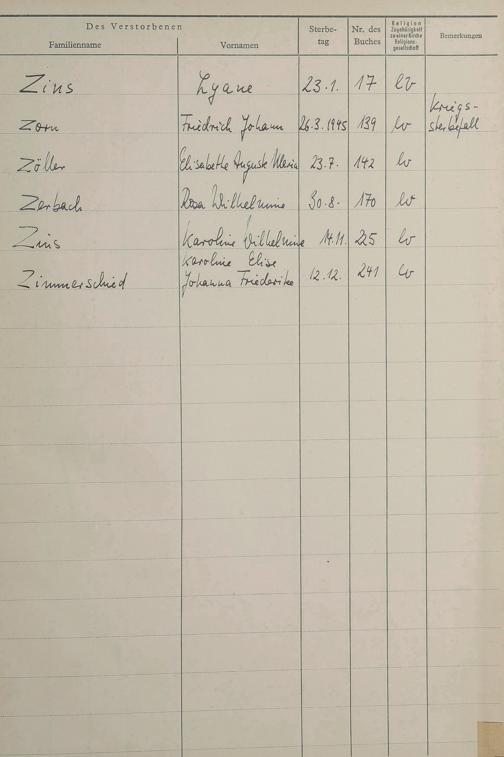 Des Verstorbenen
Familienname
Vornamen
Sterbe-
tag
Nr. des
Buches
Religion
Zugehörigkeit
zu einer Kirche
Religions-
gesellschaft
Bemerkungen
Zins Lyane 23.1. 17 lv
Zorn Friedrich Johann 26.3.1945 139 lv Kriegs-
sterbefall
Zöller Elisabethe Auguste Maria 23.7. 142 lv
Zerbach Rosa Wilhelmine 30.8. 170 lv
Zins Karoline Wilhelmine 14.11. 225 lv
Karoline Elise
Zimmerschied Johanna Friederike 12.12. 241 lv